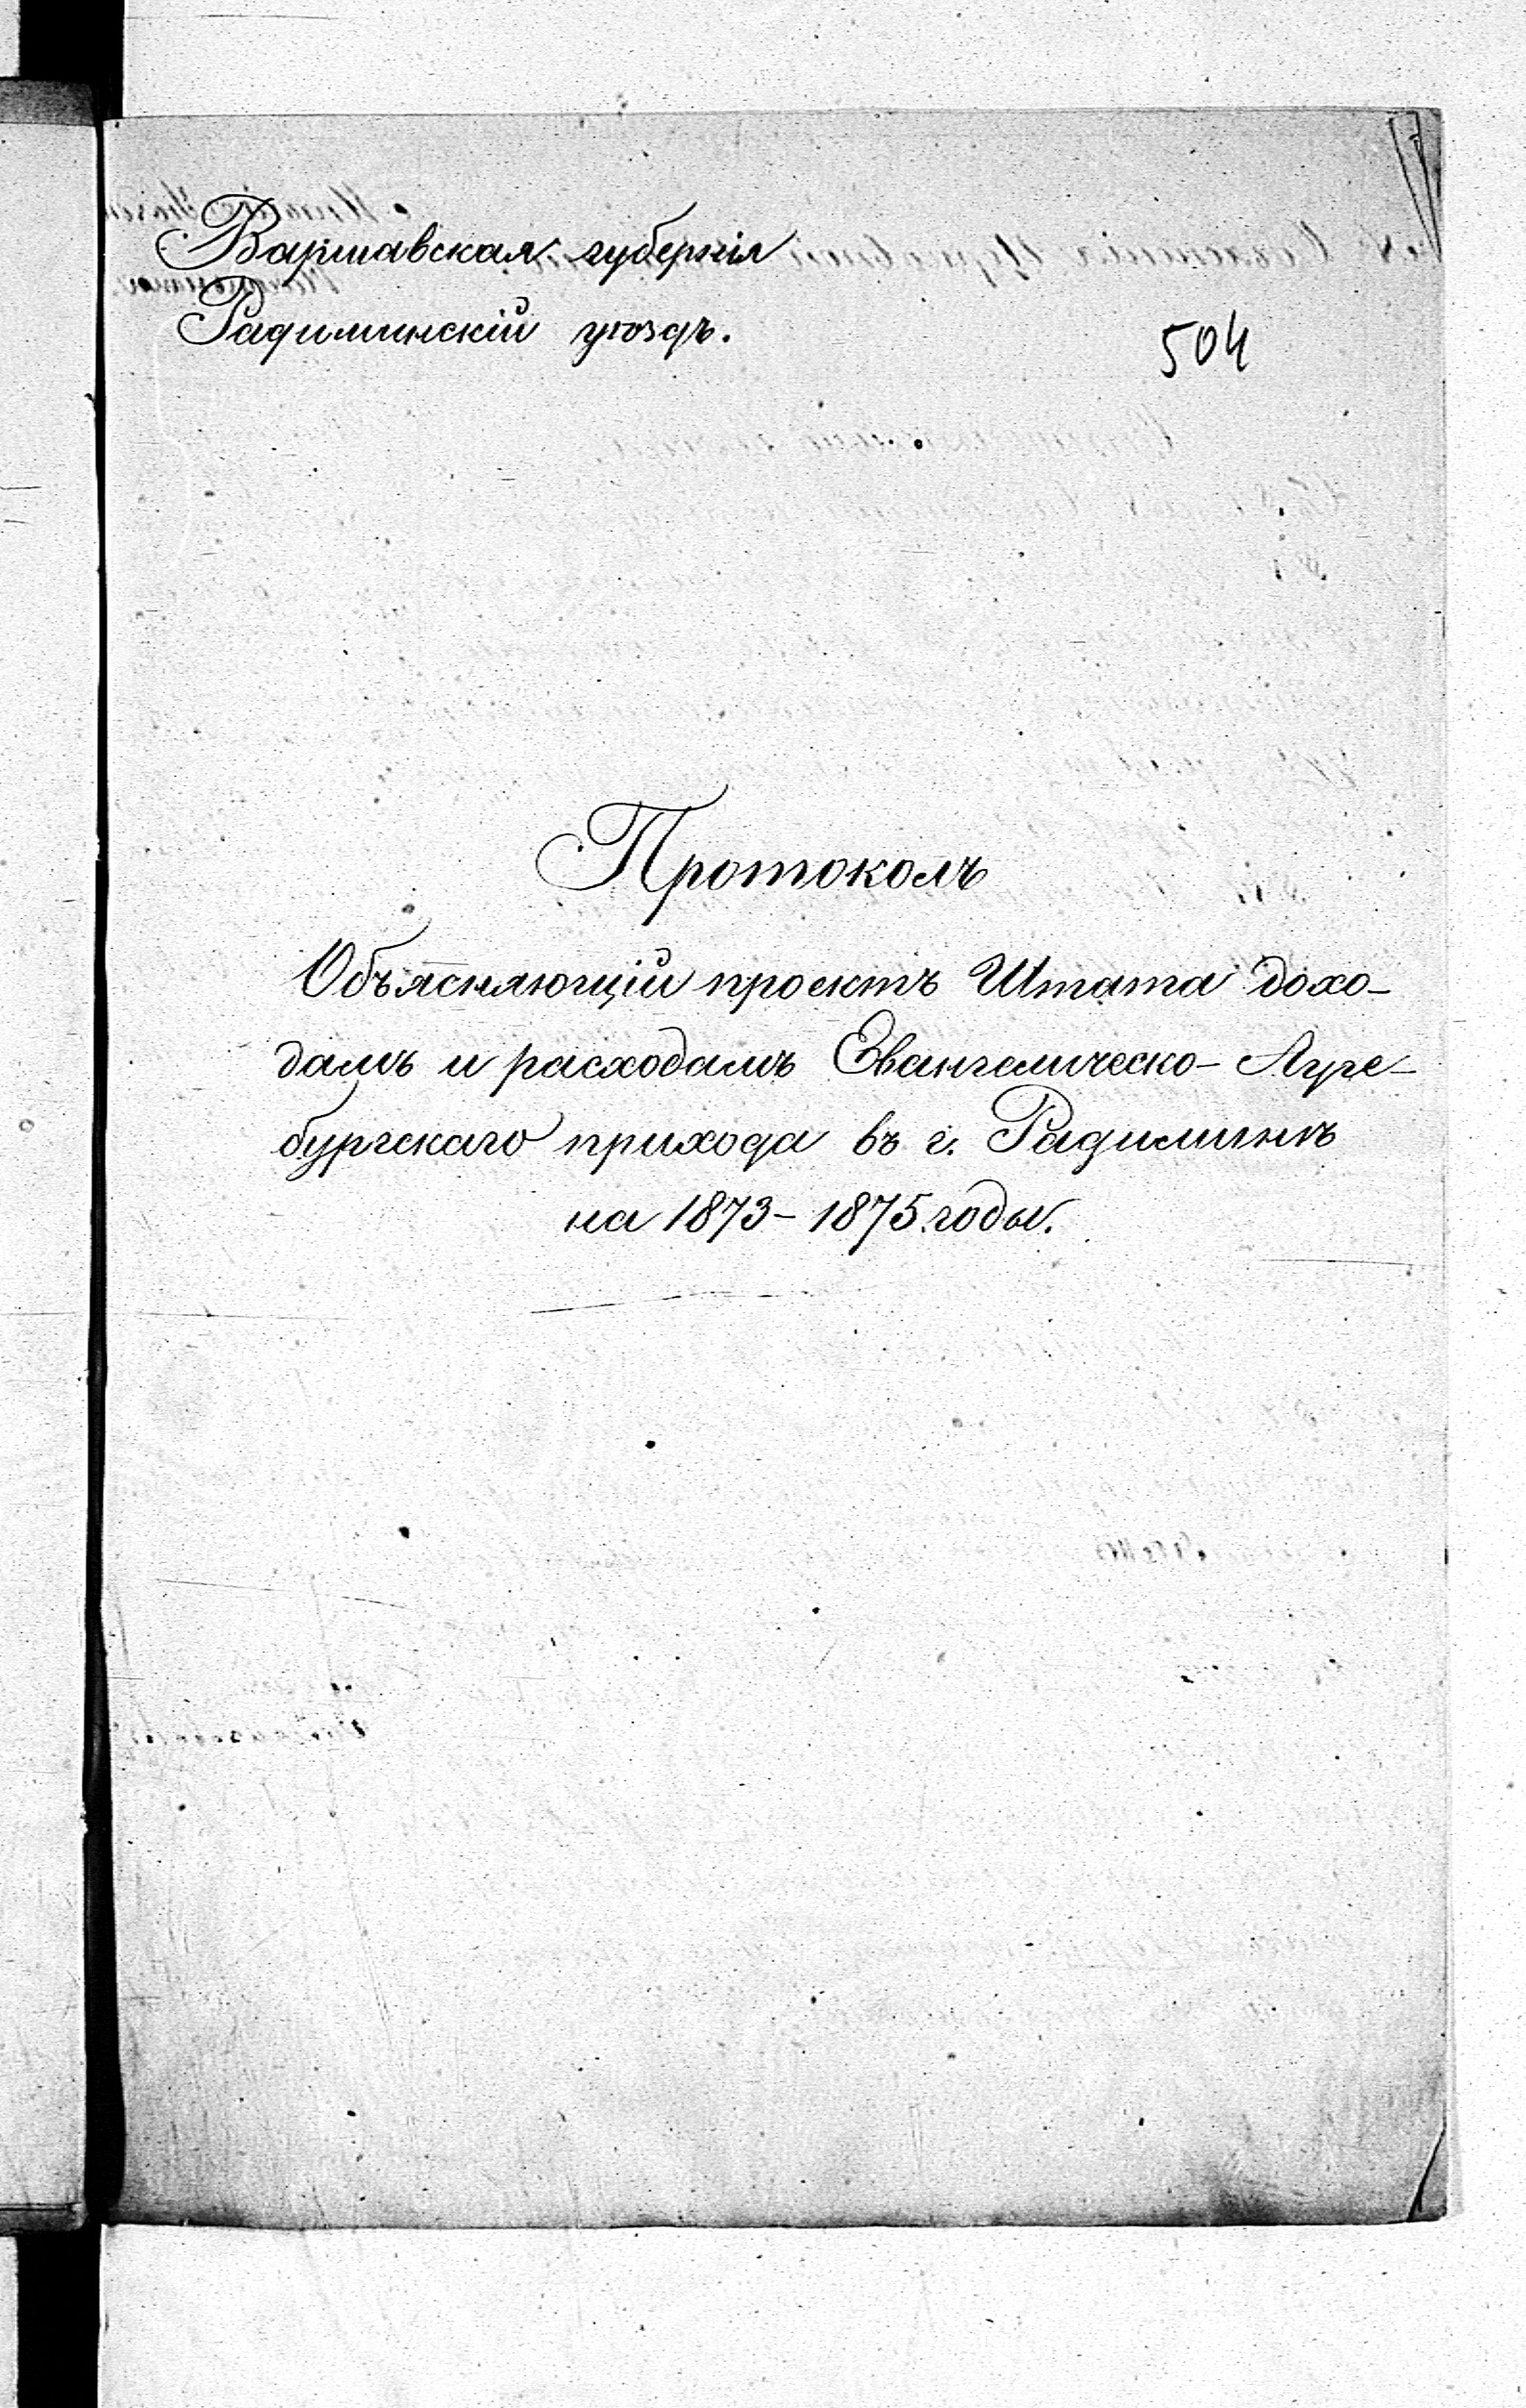 Варшавская губернія
Радиминскій уѣздъ.
504
Протоколъ
Объясняющій проектъ Штата дохо-
дамъ и расходамъ Евангелическо-Аугс-
бургскаго прихода въ г. Радиминѣ
на 1873-1875 годы.